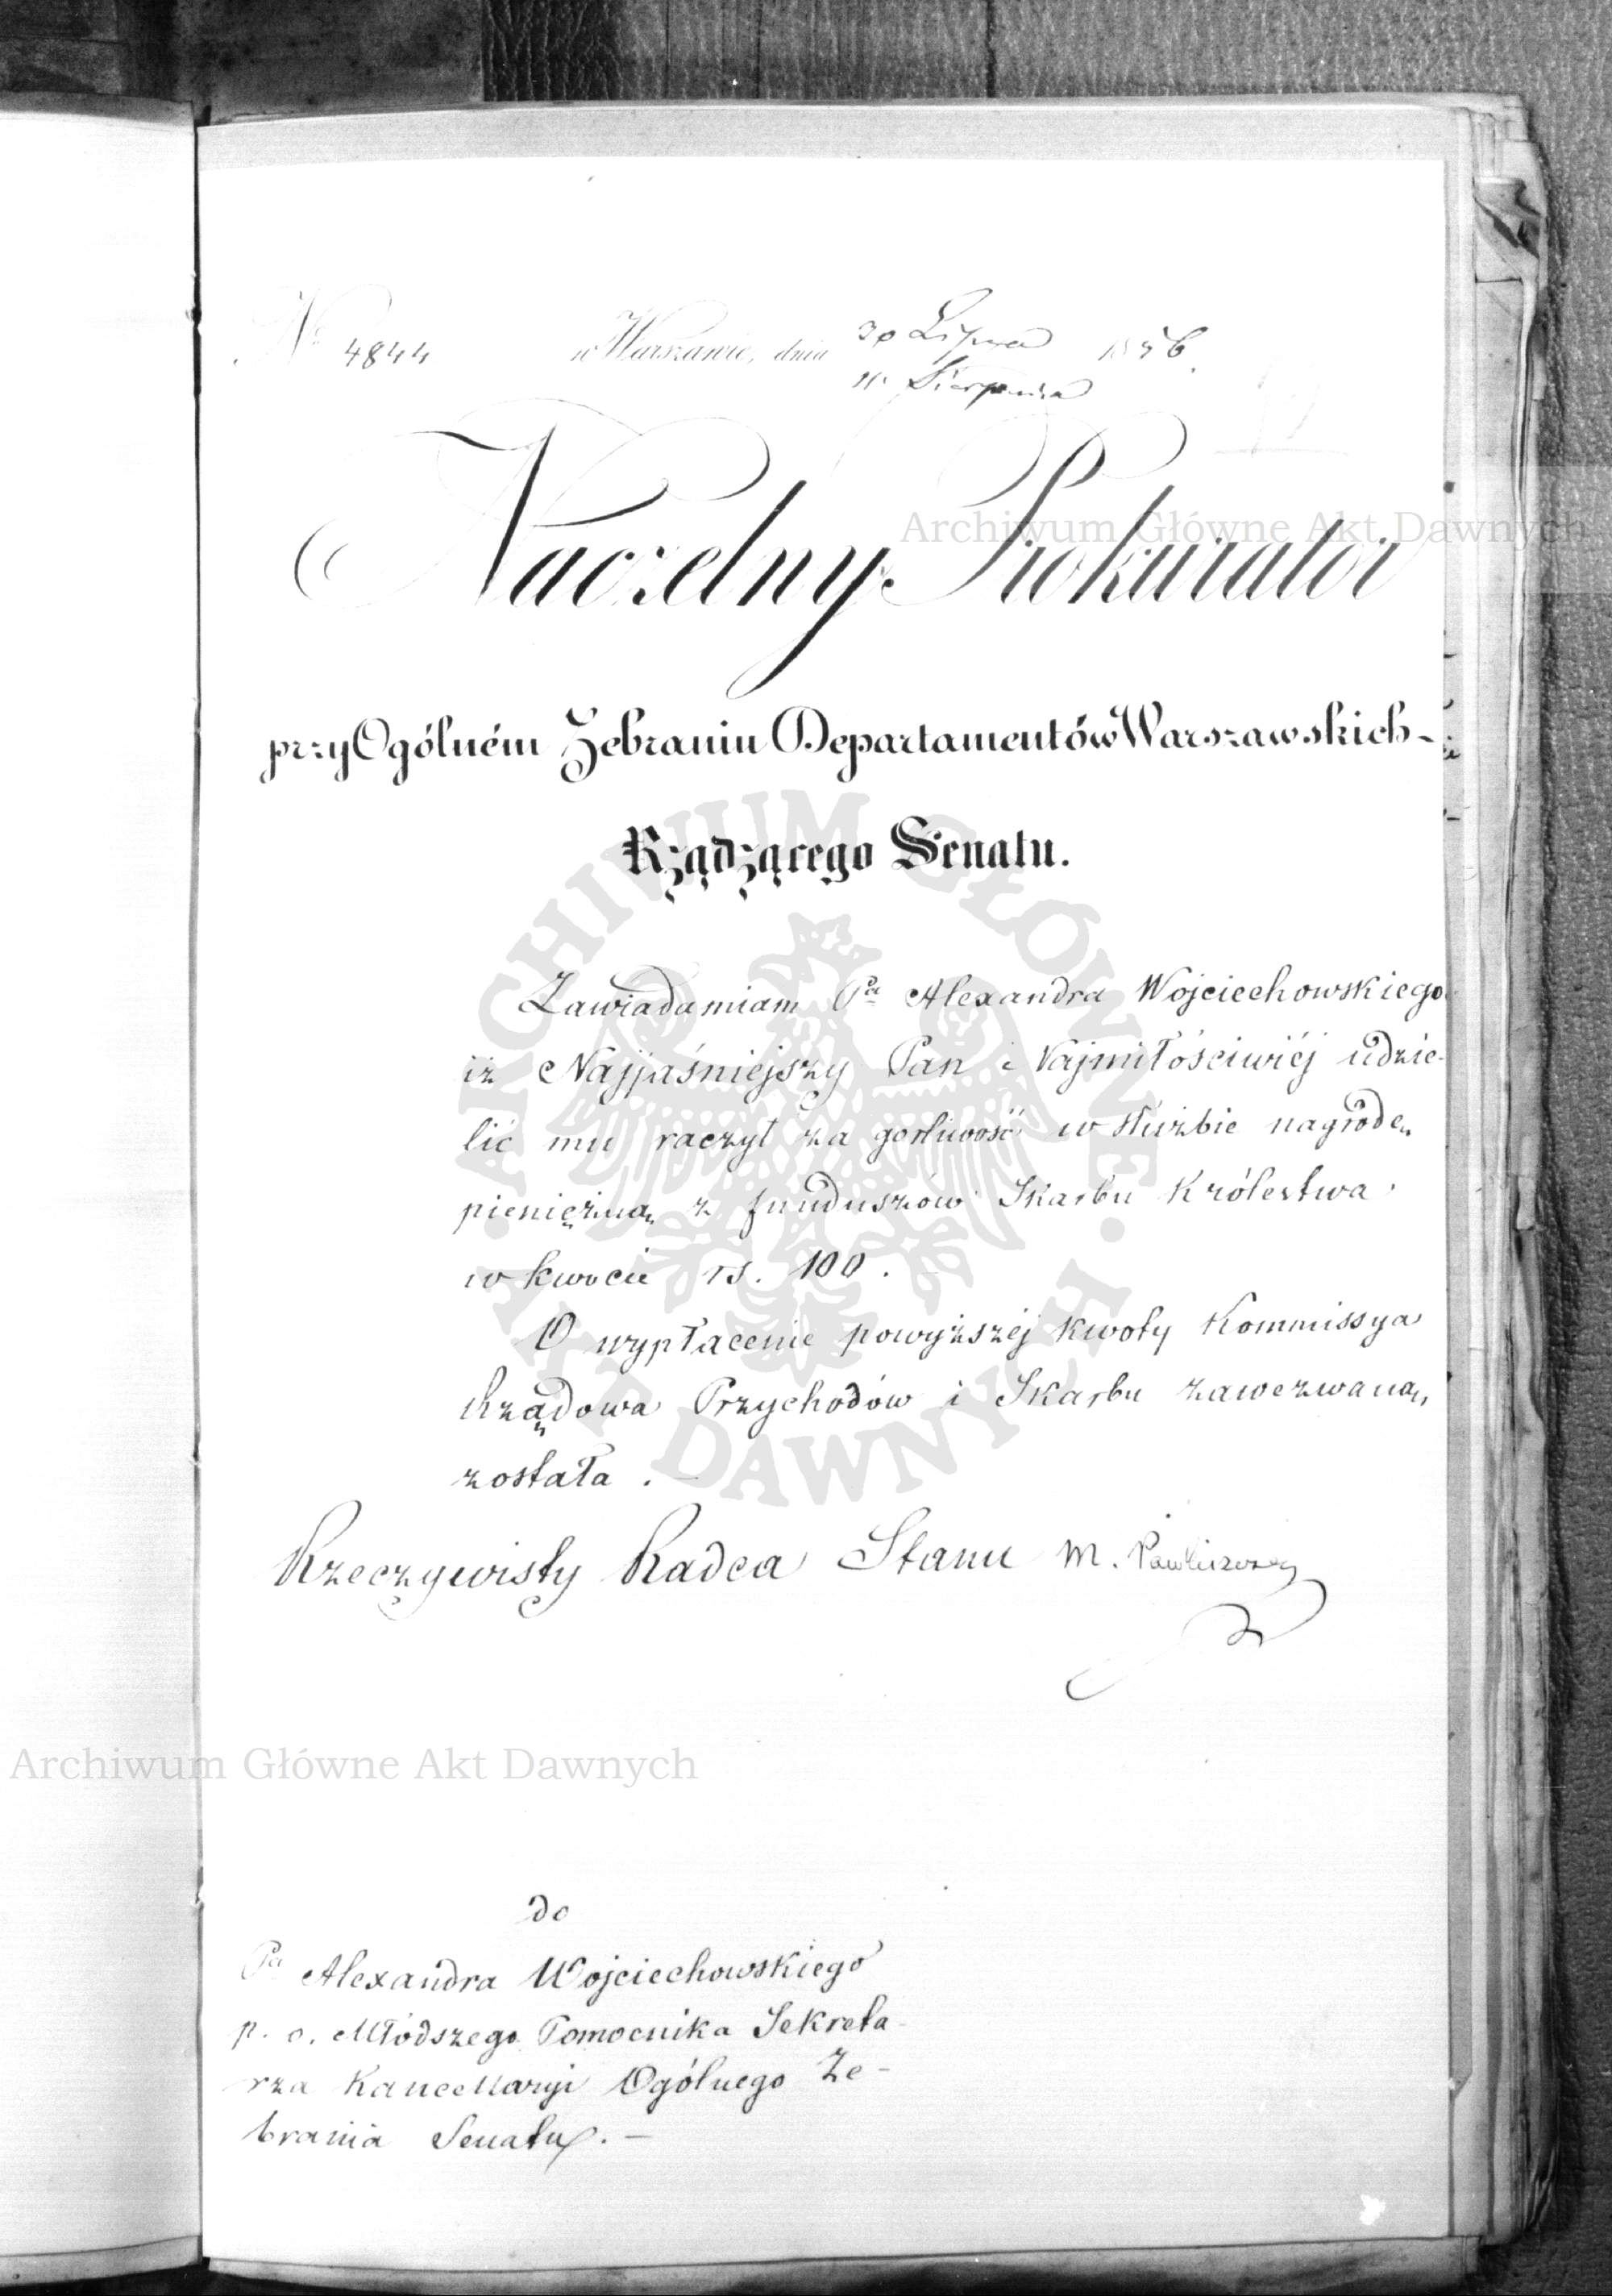 Nº 4844 w Warszawie, dnia 30 Lipca 1856.
11 Sierpnia
Naczelny Prokurator
przy Ogólném Zebraniu Departamentów Warszawskich
Rządzącego Senatu.
Zawiadamiam Pa Alexandra Wojciechowskiego
iż Najjaśniejszy Pan Najmiłościwiéj udzie-
lić mu raczył za gorliwość w służbie nagrodę
pieniężną z funduszów Skarbu Królestwa
w kwocie rs. 100.
O wypłacenie powyższéj kwoty Kommissya
Rządowa Przychodów i Skarbu zawezwaną
została. —
Rzeczywisty Radca Stanu M.
do
Pa Alexandra Wojciechowskiego
p. o. Młodszego Pomocnika Sekreta-
rza Kancellaryi Ogólnego Ze-
brania Senatu. —
Archiwum Główne Akt Dawnych
Archiwum Główne Akt Dawnych
ARCHIWUM GŁÓWNE · AKT DAWNYCH ·